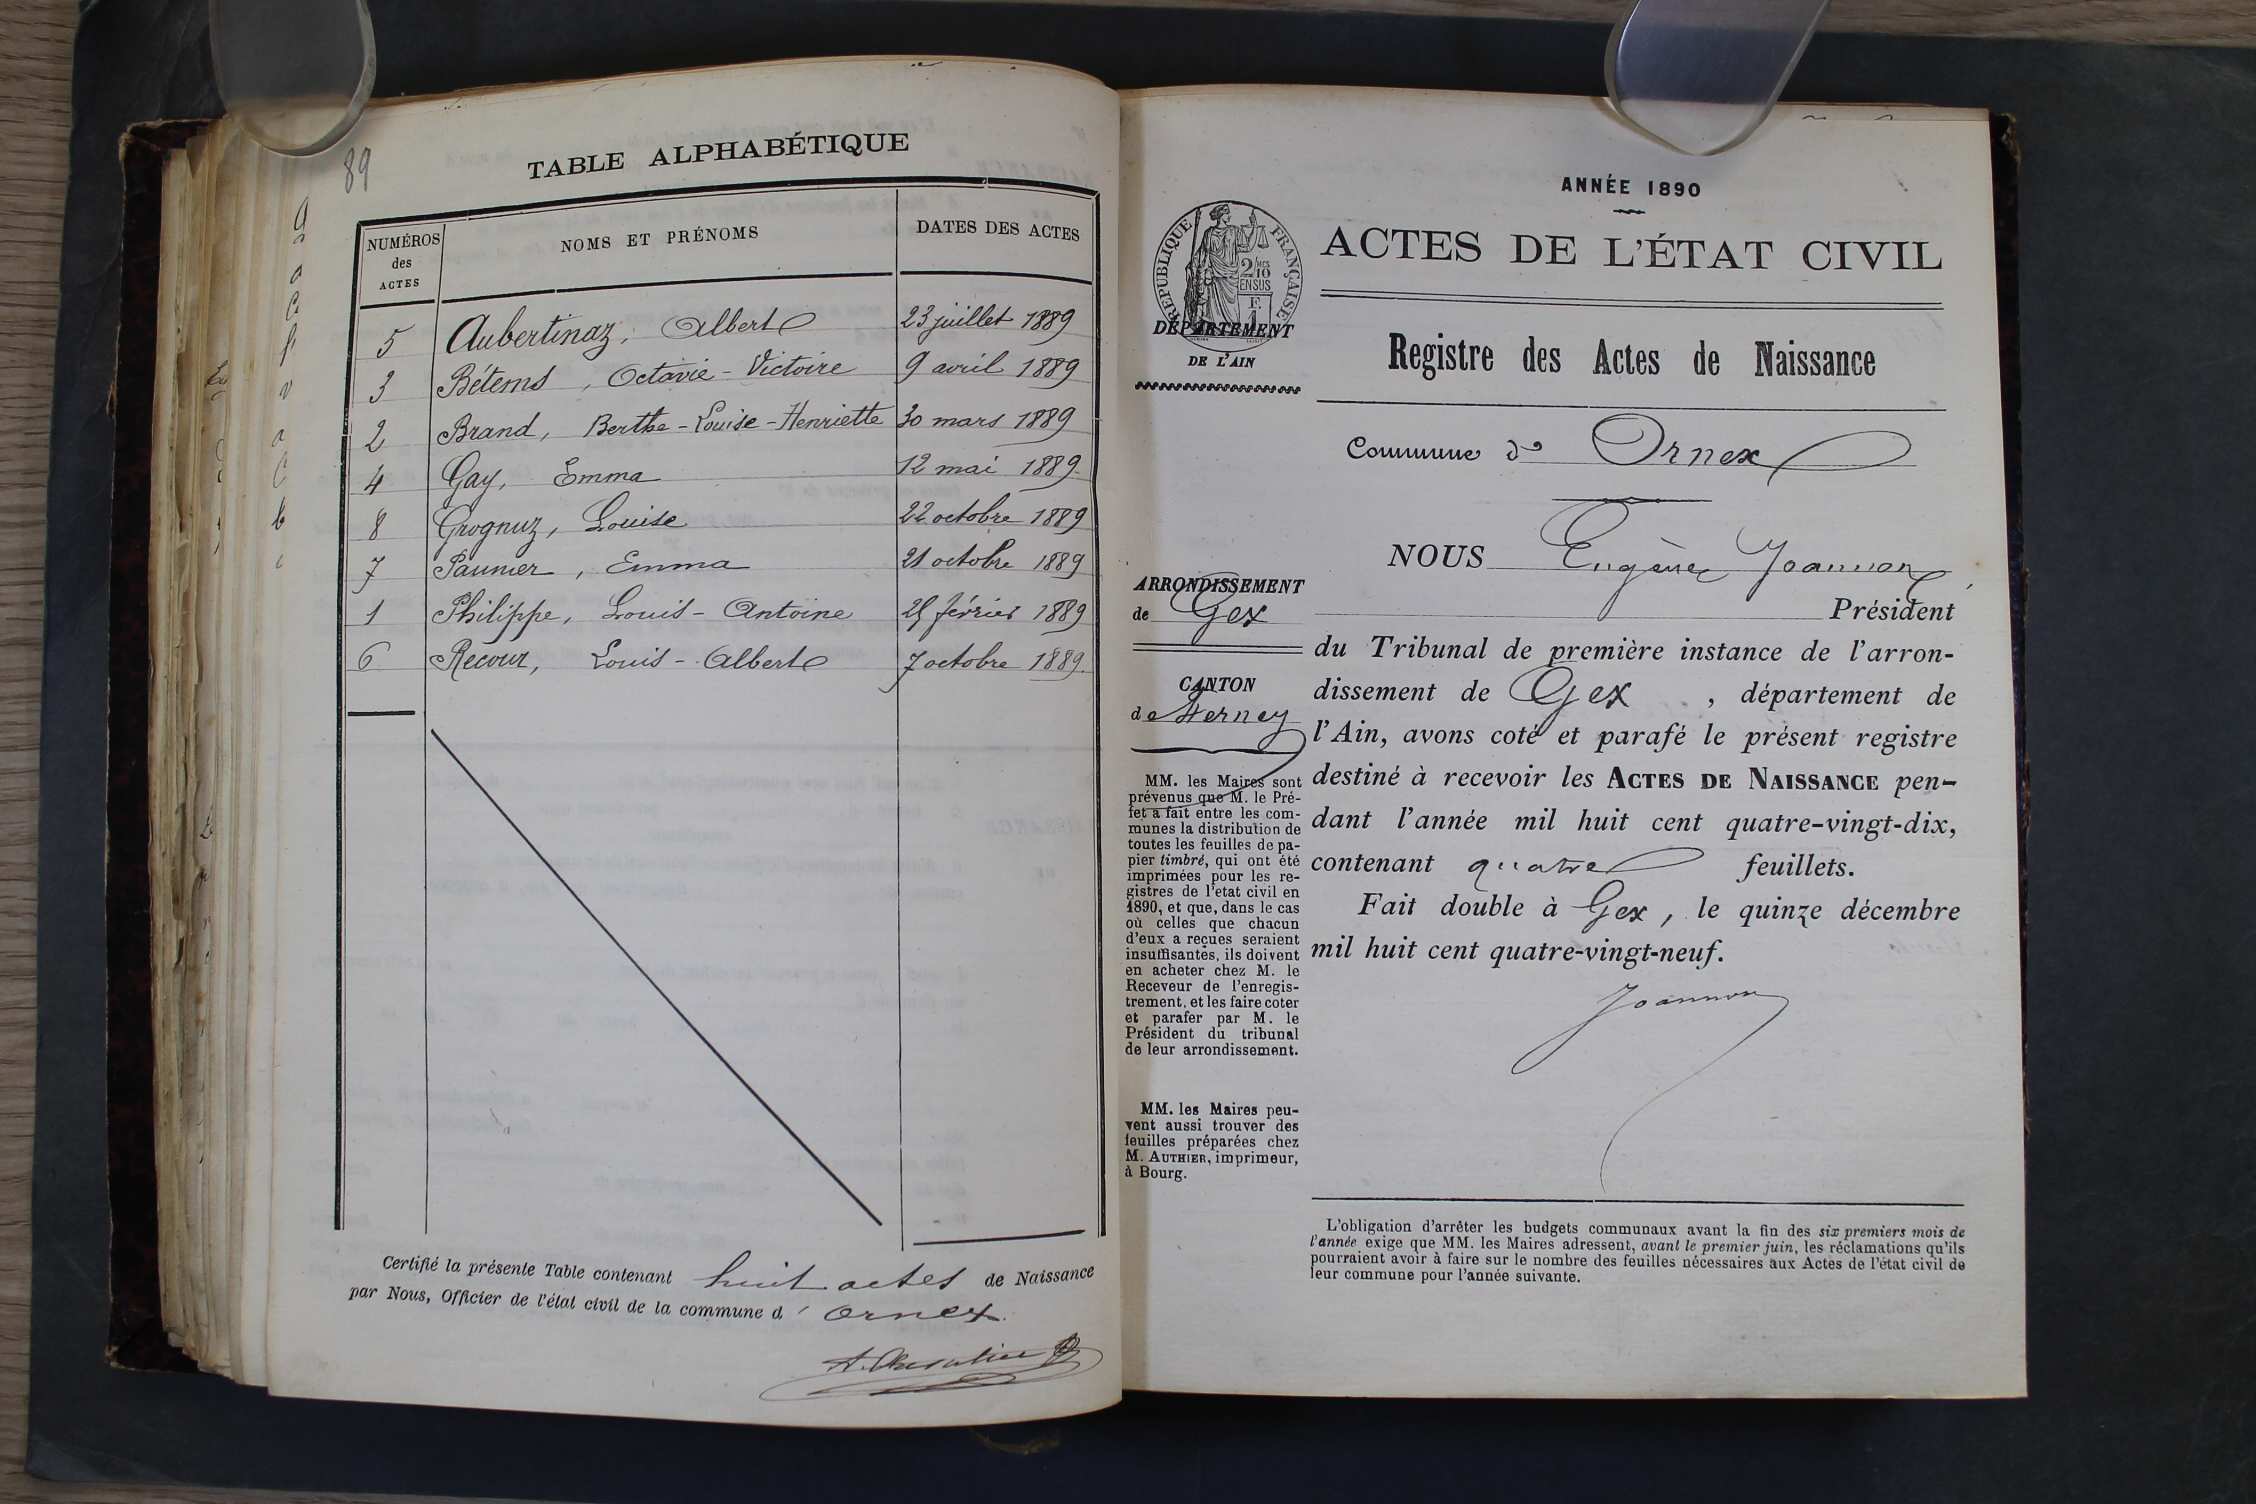 89
TABLE ALPHABÉTIQUE
NUMÉROS des ACTES NOMS ET PRÉNOMS DATES DES ACTES
5 Aubertinaz, Albert 23 juillet 1889
3 Bétems, Octavie-Victoire 9 avril 1889
2 Brand, Berthe-Louise-Henriette 30 mars 1889
4 Gay, Emma 12 mai 1889
8 Grognuz, Louise 22 octobre 1889
7 Paunier, Emma 21 octobre 1889
1 Philippe, Louis-Antoine février 1889
6 Recour, Louis-Albert 7 octobre 1889
Certifié la présente Table contenant huit actes de Naissance
par Nous, Officier de l'état civil de la commune d' Ornex.
ANNÉE 1890
RÉPUBLIQUE FRANÇAISE
ACTES DE L'ÉTAT CIVIL
DÉPARTEMENT
DE L'AIN
Registre des Actes de Naissance
Commune d' Ornex
NOUS Eugène Joannon,
Président
du Tribunal de première instance de l'arron-
dissement de Gex, département de
l'Ain, avons coté et parafé le présent registre
destiné à recevoir les ACTES DE NAISSANCE pen-
dant l'année mil huit cent quatre-vingt-dix,
contenant quatre feuillets.
Fait double à Gex, le quinze décembre
mil huit cent quatre-vingt-neuf.
Joannon
ARRONDISSEMENT
de Gex
CANTON
de Ferney
MM. les Maires sont
prévenus que M. le Pré-
fet a fait entre les com-
munes la distribution de
toutes les feuilles de pa-
pier timbré, qui ont été
imprimées pour les re-
gistres de l'etat civil en
1890, et que, dans le cas
où celles que chacun
d'eux a reçues seraient
insuffisantes, ils doivent
en acheter chez M. le
Receveur de l'enregis-
trement, et les faire coter
et parafer par M. le
Président du tribunal
de leur arrondissement.
MM. les Maires peu-
vent aussi trouver des
feuilles préparées chez
M. AUTHIER, imprimeur,
à Bourg.
L'obligation d'arrêter les budgets communaux avant la fin des six premiers mois de
l'année exige que MM. les Maires adressent, avant le premier juin, les réclamations qu'ils
pourraient avoir à faire sur le nombre des feuilles nécessaires aux Actes de l'état civil de
leur commune pour l'année suivante.